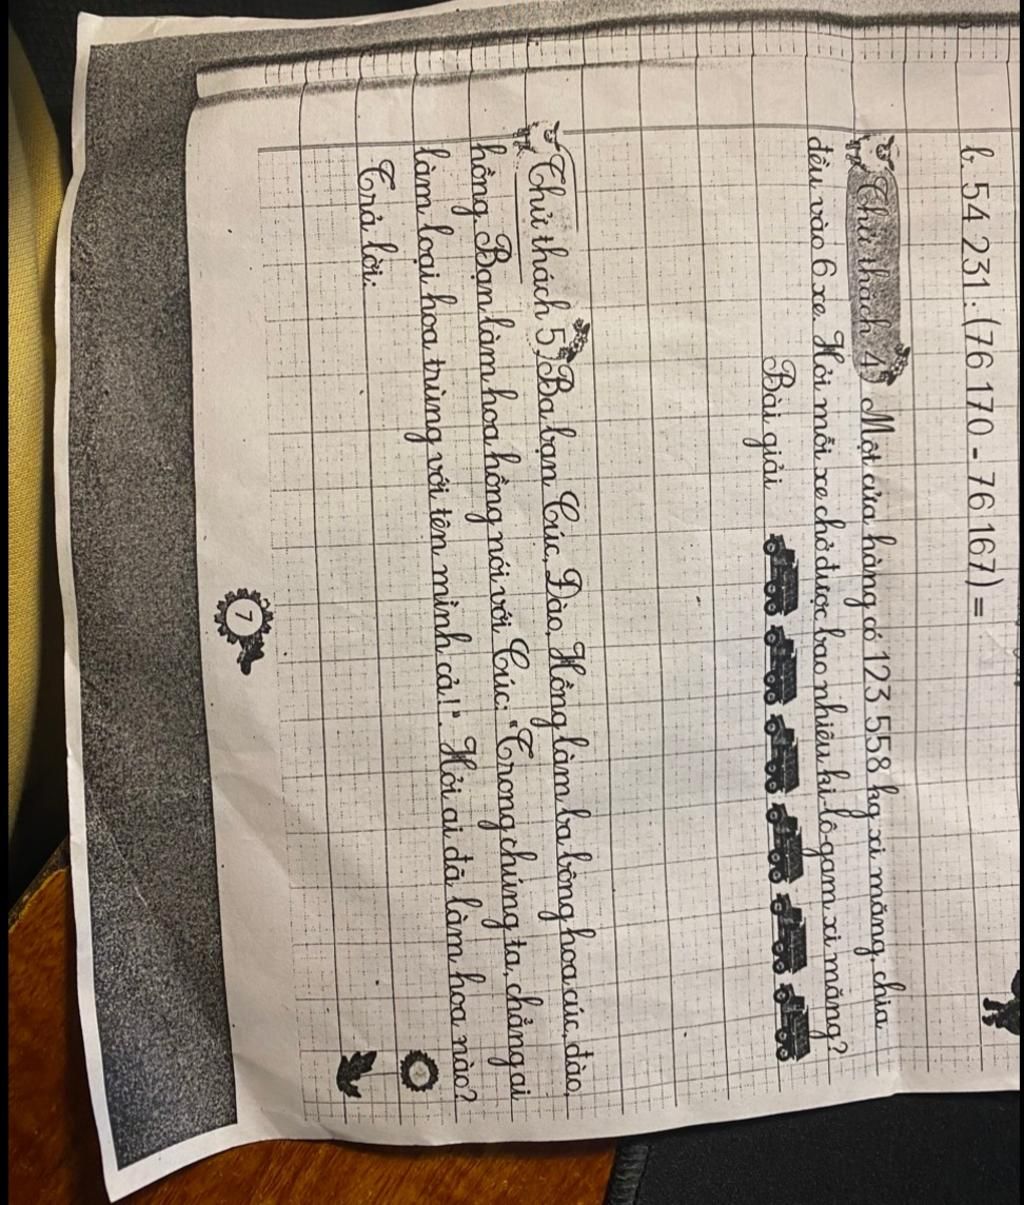 b. 54 231 : (76 170 - 76 167) =
Thử thách 4 Một cửa hàng có 123 558 kg xi măng, chia
đều vào 6 xe. Hỏi mỗi xe chở được bao nhiêu ki-lô-gam xi măng?
Bài giải
Thử thách 5 Ba bạn Cúc, Đào, Hồng làm ba bông hoa cúc, đào,
hồng. Bạn làm hoa hồng nói với Cúc: "Trong chúng ta, chẳng ai
làm loại hoa trùng với tên mình cả!". Hỏi ai đã làm hoa nào?
Trả lời:
7